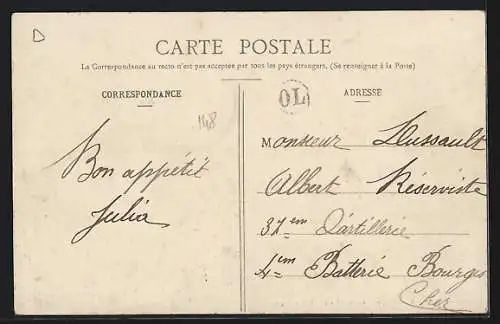 D
CARTE POSTALE
La Correspondance au recto n'est pas acceptée par tous les pays étrangers, (Se renseigner à la Poste)
CORRESPONDANCE
ADRESSE
OL
148
Bon appétit
Julia
Monsieur Dussault
Albert Réserviste
37em D'artillerie
4em Batterie Bourges
Cher